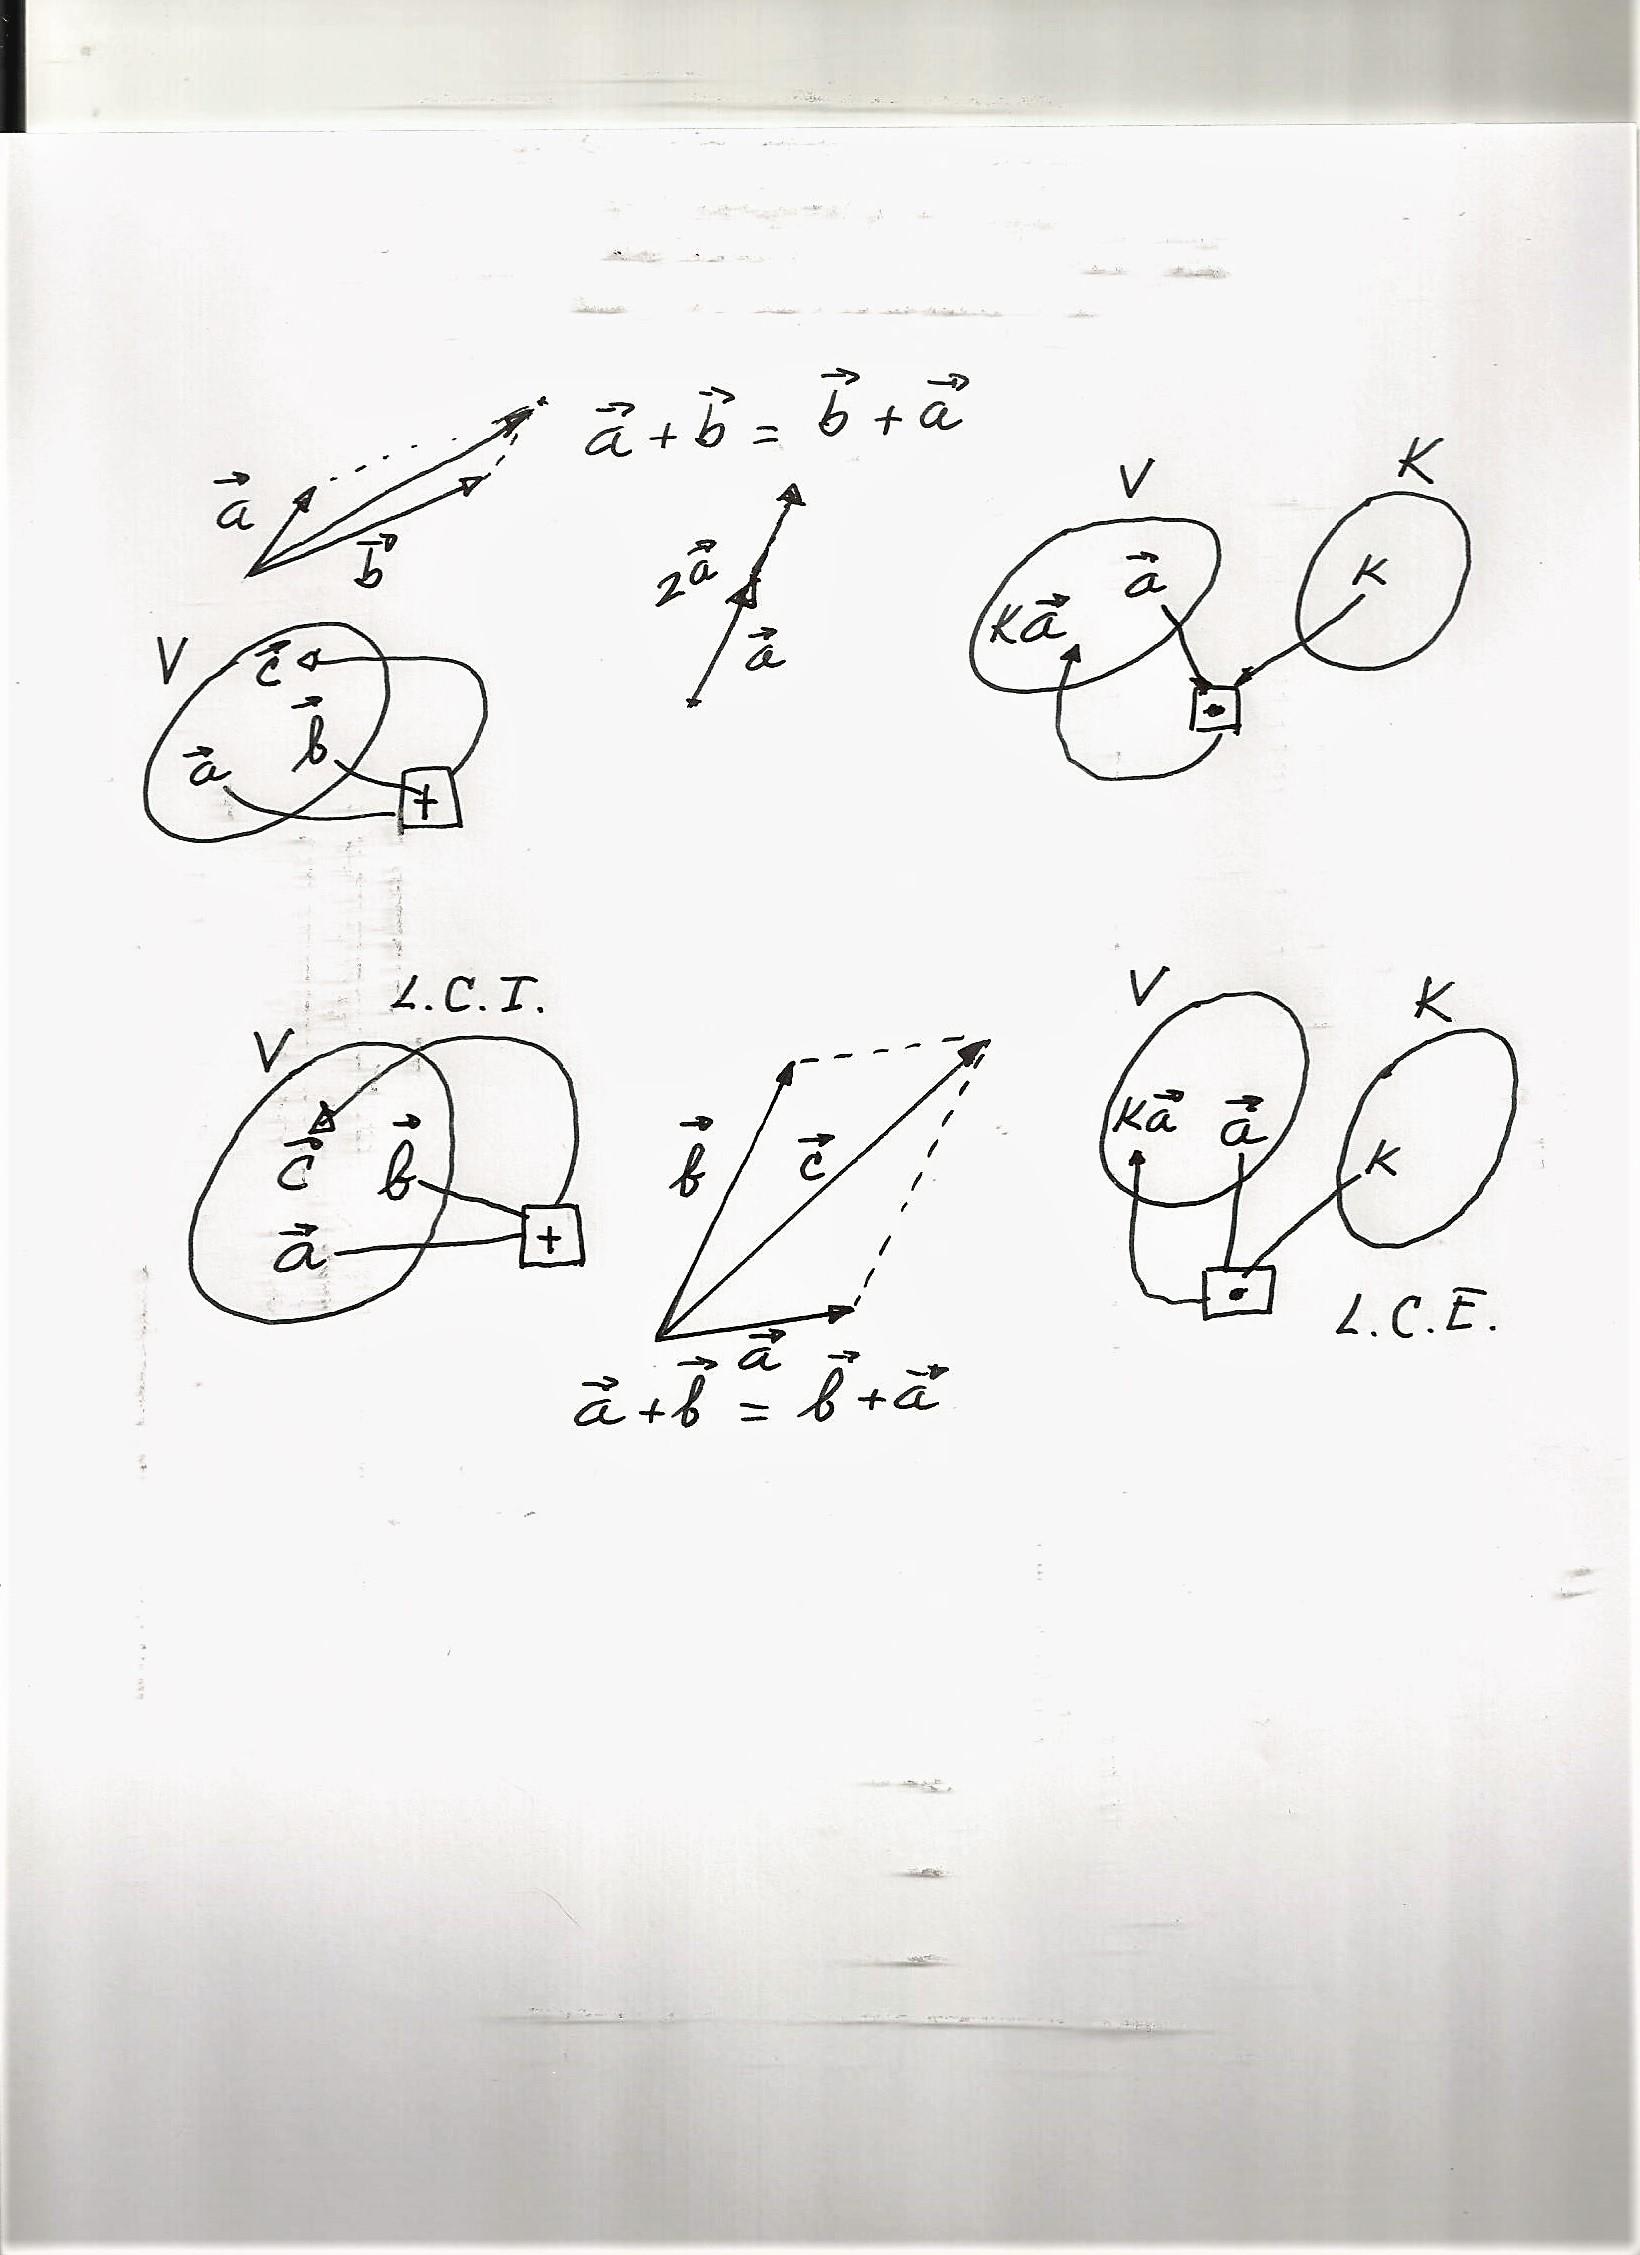 a⃗ + b⃗ = b⃗ + a⃗
a⃗
b⃗
2a⃗
a⃗
V
K
a⃗
Ka⃗
K
V
c⃗
b⃗
a⃗
+
•
L.C.I.
V
c⃗
b⃗
a⃗
+
b⃗
c⃗
a⃗
a⃗ + b⃗ = b⃗ + a⃗
V
K
Ka⃗
a⃗
K
•
L.C.E.